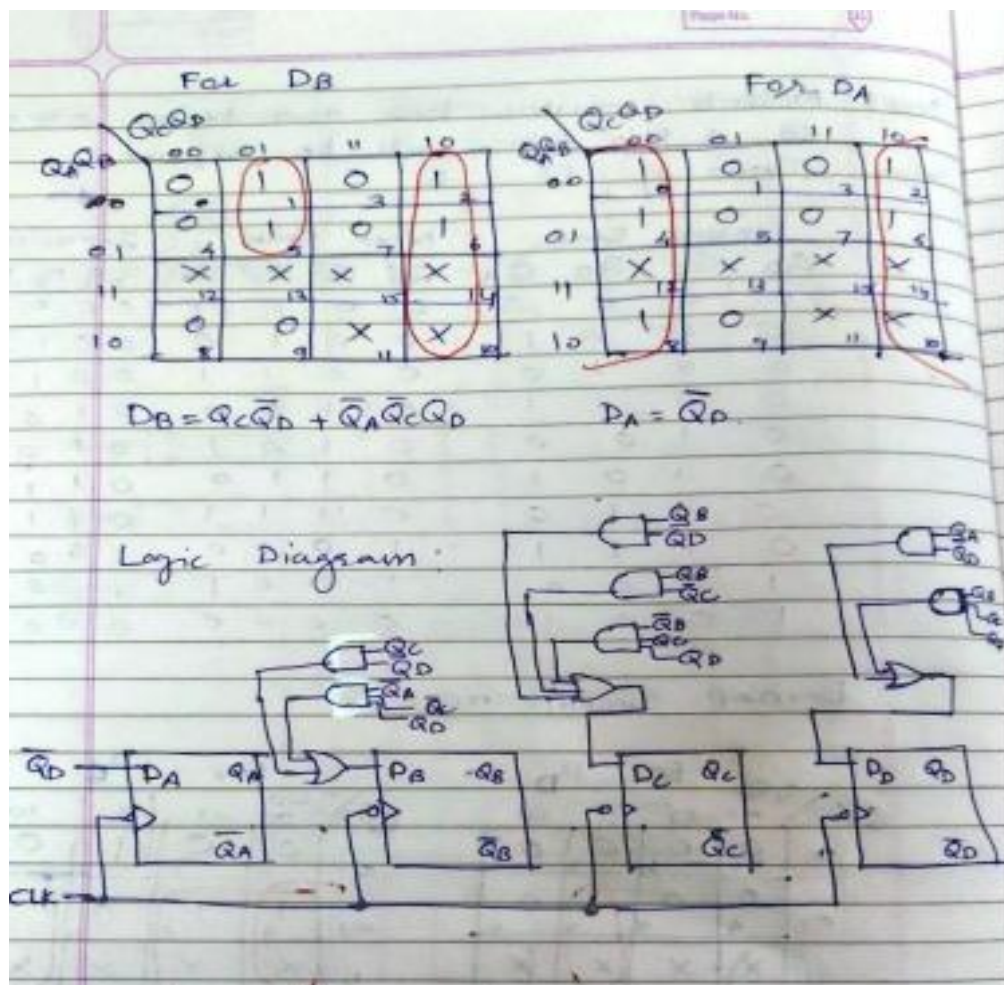 Page No.
For DB
For DA
QCQD
QAQB
00 01 11 10
00 0 0 1 1 0 3 1 2
01 0 4 1 5 0 7 1 6
11 X 12 X 13 X 15 X 14
10 0 8 0 9 X 11 X 10
QCQD
QAQB
00 01 11 10
00 1 0 0 1 0 3 1 2
01 1 4 0 5 0 7 1 6
11 X 12 X 13 X 15 X 14
10 1 8 0 9 X 11 X 10
DB = QCQ̅D + Q̅AQ̅CQD
DA = Q̅D.
Logic Diagram:
QB
Q̅D
QB
Q̅C
Q̅B
QC
QD
QA
Q̅D
QB
QC
Q̅D
Q̅A
Q̅C
QD
Q̅D
DA QA
Q̅A
DB QB
Q̅B
DC QC
Q̅C
DD QD
Q̅D
CLK